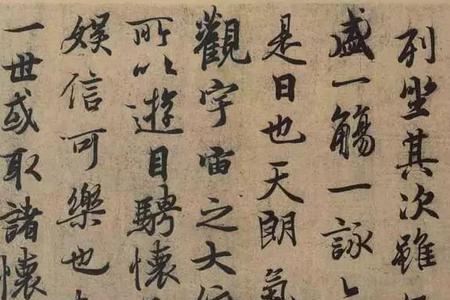 列坐其次雖
盛一觴一詠
是日也天朗氣
觀宇宙之大
所以遊目騁懷
娱信可樂也
一世或取諸懷